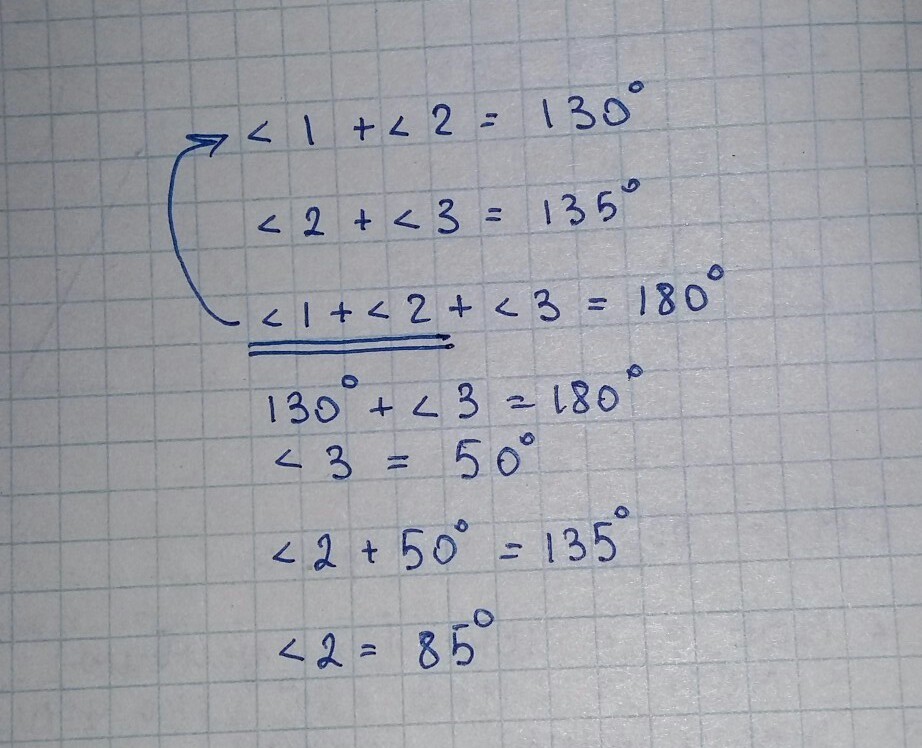 < 1 + < 2 = 130°
< 2 + < 3 = 135°
< 1 + < 2 + < 3 = 180°
130° + < 3 = 180°
< 3 = 50°
< 2 + 50° = 135°
< 2 = 85°